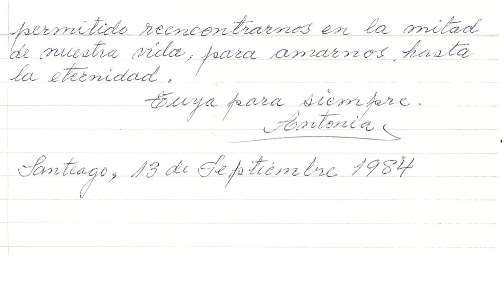 permitido reencontrarnos en la mitad
de nuestra vida, para amarnos hasta
la eternidad.
Tuya para siempre.
Antonia
Santiago, 13 de Septiembre 1984